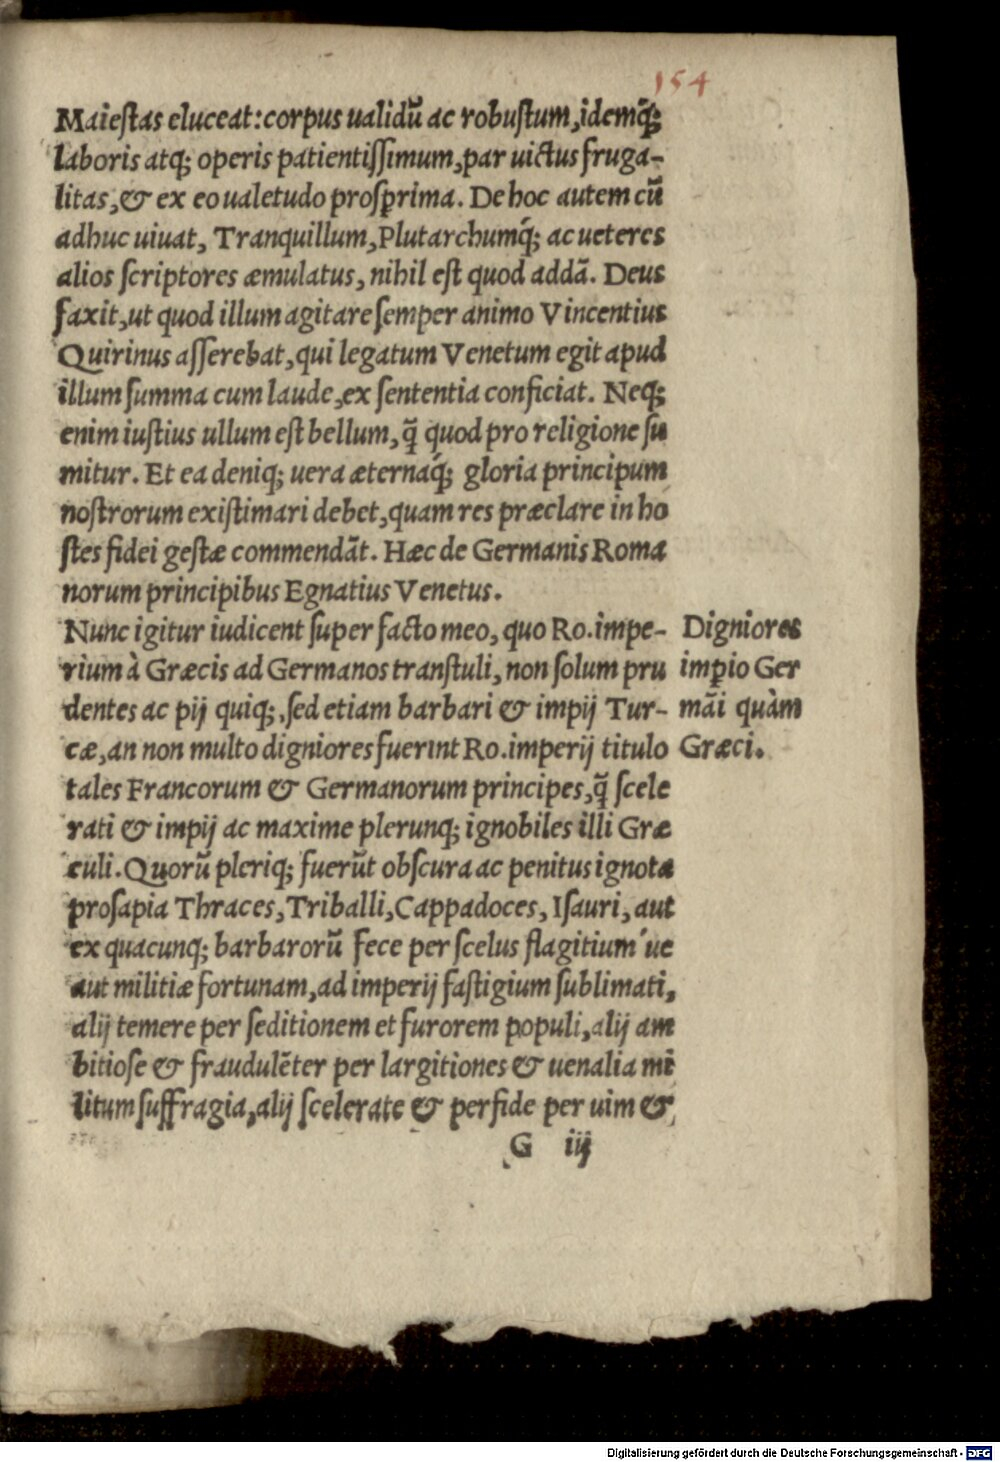 154
Maiestas eluceat: corpus ualidũ ac robustum, idemq́;
laboris atq; operis patientissimum, par uictus fruga-
litas, & ex eo ualetudo prosꝑrima. De hoc autem cũ
adhuc uiuat, Tranquillum, Plutarchumq́; ac ueteres
alios scriptores æmulatus, nihil est quod addã. Deus
faxit, ut quod illum agitare semper animo Vincentius
Quirinus asserebat, qui legatum Venetum egit apud
illum summa cum laude, ex sententia conficiat. Neq;
enim iustius ullum est bellum, q̃ quod pro religione su
mitur. Et ea deniq; uera æternaq́; gloria principum
nostrorum existimari debet, quam res præclare in ho
stes fidei gestæ commendãt. Hæc de Germanis Roma
norum principibus Egnatius Venetus.
Nunc igitur iudicent super facto meo, quo Ro. impe-
rium à Græcis ad Germanos transtuli, non solum pru
dentes ac pij quiq;, sed etiam barbari & impij Tur-
cæ, an non multo digniores fuerint Ro. imperij titulo
tales Francorum & Germanorum principes, q̃ scele
rati & impij ac maxime plerunq; ignobiles illi Græ
culi. Quorũ pleriq; fuerũt obscura ac penitus ignota
prosapia Thraces, Triballi, Cappadoces, Isauri, aut
ex quacunq; barbarorũ fece per scelus flagitium'ue
aut militiæ fortunam, ad imperij fastigium sublimati,
alij temere per seditionem et furorem populi, alij am
bitiose & fraudulẽter per largitiones & uenalia mi
litum suffragia, alij scelerate & perfide per uim &
G iij
Digniores
imꝑio Ger
mãi quàm
Græci.
Digitalisierung gefördert durch die Deutsche Forschungsgemeinschaft - DFG